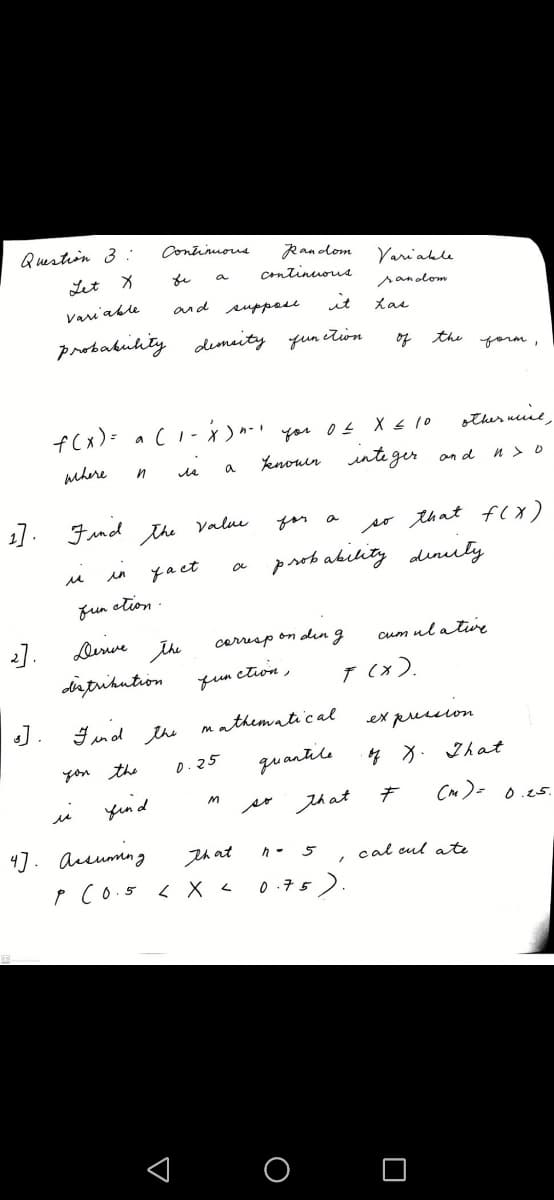 Question 3 : Continuous Random Variable
Let X be a continuous random
variable and suppose it has
probability density function of the form,
f(x)= a (1-x)n-1 for 0≤ X ≤ 10 otherwise,
where n is a known integer and n > 0
1]. Find the value for a so that f(x)
is in fact a probability density
function.
2]. Derive the corresponding cumulative
distribution function, F (x).
3]. Find the mathematical expression
for the 0.25 quantile of X. That
is find m so that F (m)= 0.25.
4]. Assuming that n = 5, calculate
P (0.5 < X < 0.75).